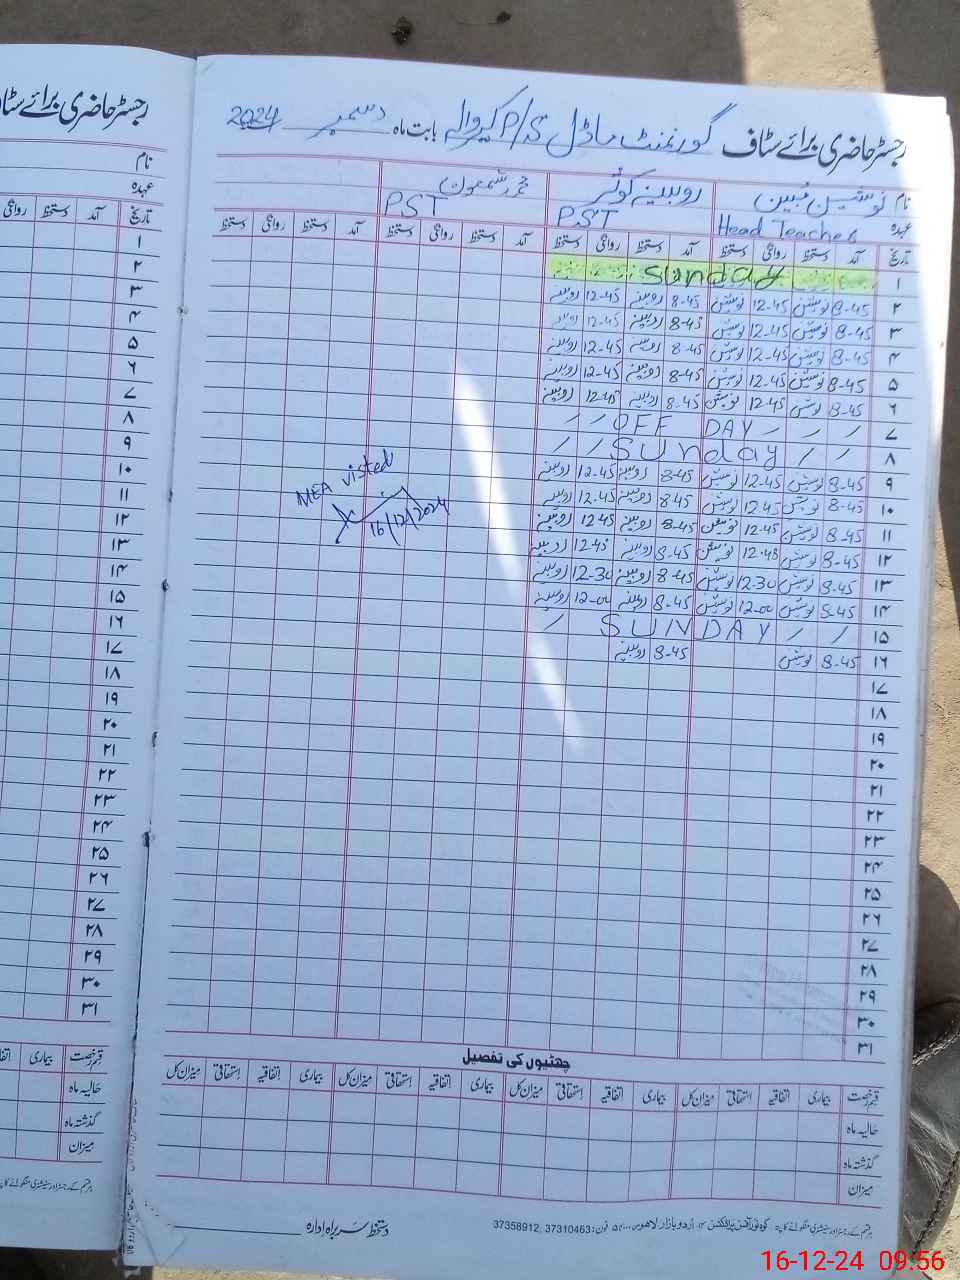 رجسٹر حاضری برائے سٹاف گورنمنٹ ماڈل P/S کیروالے بابت ماہ دسمبر 2024
نام نوشین مبین روبینہ کوثر محمد شمعون
عہدہ Head Teacher PST PST
تاریخ آمد دستخط روانگی دستخط آمد دستخط روانگی دستخط آمد دستخط روانگی دستخط آمد دستخط روانگی دستخط
۱ Sunday
۲ 8-45 نوشین 12-45 نوشین 8-45 روبینہ 12-45 روبینہ
۳ 8-45 نوشین 12-45 نوشین 8-45 روبینہ 12-45 روبینہ
۴ 8-45 نوشین 12-45 نوشین 8-45 روبینہ 12-45 روبینہ
۵ 8-45 نوشین 12-45 نوشین 8-45 روبینہ 12-45 روبینہ
۶ 8-45 نوشین 12-45 نوشین 8-45 روبینہ 12-45 روبینہ
۷ OFF DAY
۸ Sunday
۹ 8-45 نوشین 12-45 نوشین 8-45 روبینہ 12-45 روبینہ
۱۰ 8-45 نوشین 12-45 نوشین 8-45 روبینہ 12-45 روبینہ
۱۱ 8-45 نوشین 12-45 نوشین 8-45 روبینہ 12-45 روبینہ
۱۲ 8-45 نوشین 12-45 نوشین 8-45 روبینہ 12-45 روبینہ
۱۳ 8-45 نوشین 12-30 نوشین 8-45 روبینہ 12-30 روبینہ
۱۴ 8-45 نوشین 12-00 نوشین 8-45 روبینہ 12-00 روبینہ
۱۵ SUNDAY
۱۶ 8-45 نوشین 8-45 روبینہ
MEA visted
16/12/2024
۱۷
۱۸
۱۹
۲۰
۲۱
۲۲
۲۳
۲۴
۲۵
۲۶
۲۷
۲۸
۲۹
۳۰
۳۱
چھٹیوں کی تفصیل
قسم رخصت بیماری اتفاقیہ استحقاقی میزان کل بیماری اتفاقیہ استحقاقی میزان کل بیماری اتفاقیہ استحقاقی میزان کل بیماری اتفاقیہ استحقاقی میزان کل
حالیہ ماہ
گذشتہ ماہ
میزان
دستخط سربراہ ادارہ
ہر قسم کے رجسٹر اور سٹیشنری منگوانے کا پتہ اردو بازار لاہور فون: 37310463, 37358912
رجسٹر حاضری برائے سٹاف
نام
عہدہ
تاریخ آمد دستخط روانگی
۱
۲
۳
۴
۵
۶
۷
۸
۹
۱۰
۱۱
۱۲
۱۳
۱۴
۱۵
۱۶
۱۷
۱۸
۱۹
۲۰
۲۱
۲۲
۲۳
۲۴
۲۵
۲۶
۲۷
۲۸
۲۹
۳۰
۳۱
قسم رخصت بیماری
حالیہ ماہ
گذشتہ ماہ
میزان
ہر قسم کے رجسٹر اور سٹیشنری منگوانے کا پتہ
16-12-24 09:56